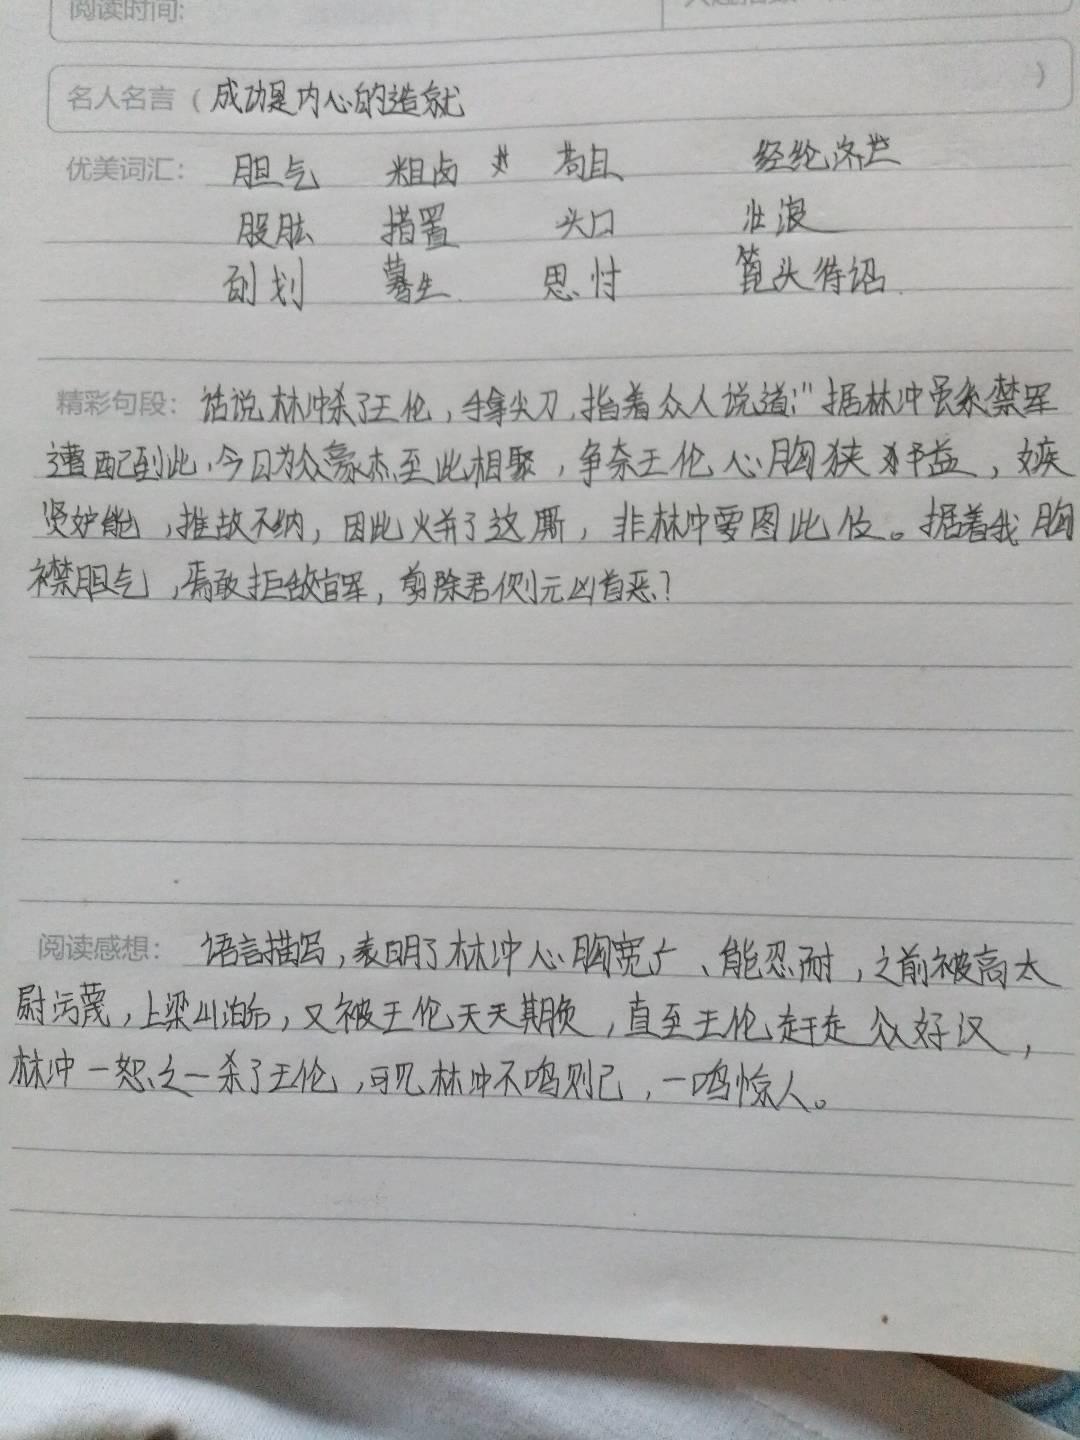 阅读时间:
名人名言（成功是内心的造就）
优美词汇: 胆气 粗卤 苟且 经纶济世
股肱 措置 头口 壮浪
刮划 蓦生 思忖 篦头待诏
精彩句段: 话说林冲杀了王伦,手拿尖刀,指着众人说道:"据林冲虽系禁军
遭配到此,今日为众豪杰至此相聚,争奈王伦心胸狭隘,嫉
贤妒能,推故不纳,因此火并了这厮,非林冲要图此位。据着我胸
襟胆气,焉敢拒敌官军,剪除君侧元凶首恶?
阅读感想: 语言描写,表明了林冲心胸宽广、能忍耐,之前被高太
尉污蔑,上梁山泊后,又被王伦天天欺负,直至王伦赶走众好汉,
林冲一怒之一杀了王伦,可见林冲不鸣则已,一鸣惊人。